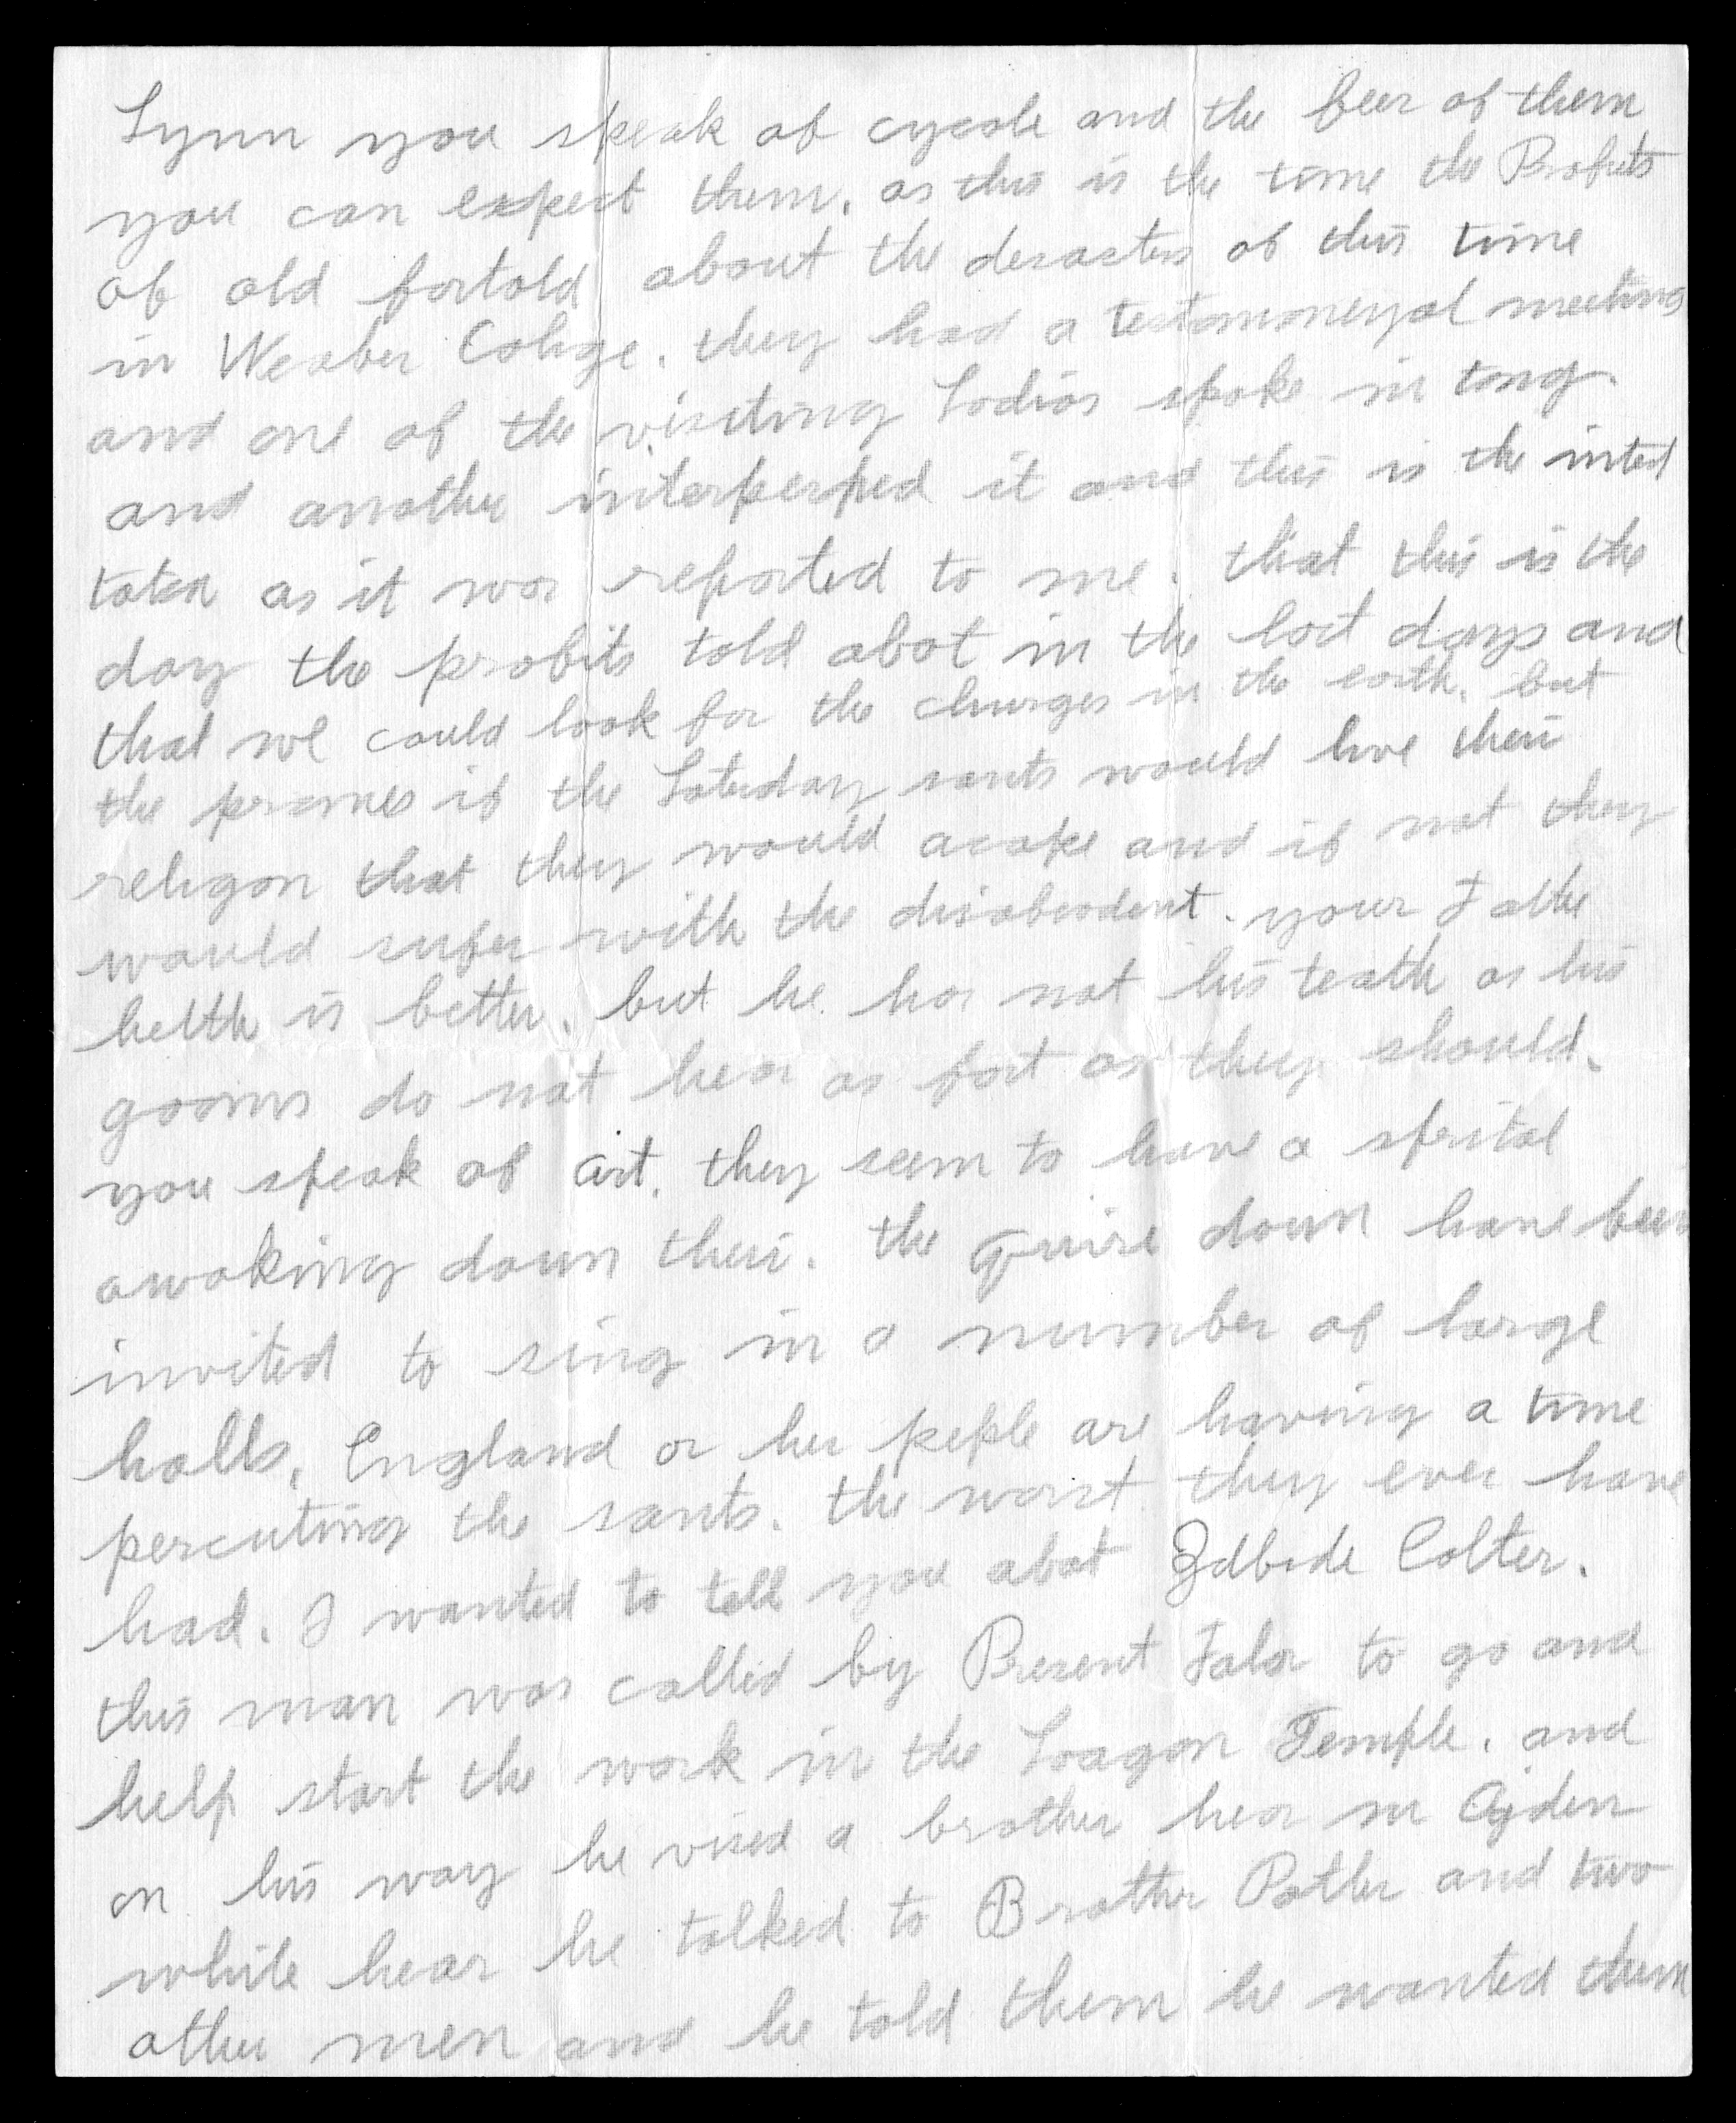 Lynn you speak of cycole and the feer of them
you can expect them. as this is the time the Profits
of old fortold about the desasters of this time
in Weaber Colige. they had a testamoneyal meeting
and one of the visiting Ladias spoke in tong.
and another interperped it and this is the inted
taten as it was reported to me. that this is the
day the profits told abot in the last days and
that we could look for the changes in the earth. but
the promes if the Lateday sants would live their
religon that they would acape and if not they
would sufer with the disobeadent. your Fathe
helth is better. but he has not his teath as his
gooms do not hea as fast as they should.
you speak of art. they seem to have a sprital
awaking down their. the Quire down have been
invited to sing in a number of large
halls. England or her peple are having a time
percuting the sants. the worst they ever have
had. I wanted to tell you abot Colter.
this man was called by Present Talor to go and
help start the work in the Loagon Temple. and
on his way he vised a brother hear in Ogden
while hear he talked to Brother and two
other men and he told them he wanted them